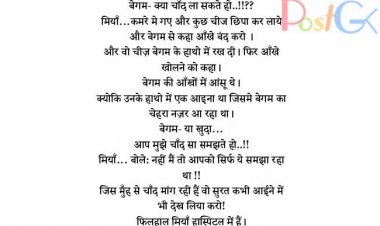 PostGk
बेगम- क्या चाँद ला सकते हो..!!??
मियाँ...कमरे मे गए और कुछ चीज छिपा कर लाये
और बेगम से कहा आँखे बंद करो ।
और वो चीज़ बेगम के हाथो में रख दी। फिर आँखे
खोलने को कहा।
बेगम की आँखों में आंसू थे।
क्योकि उनके हाथो में एक आइना था जिसमे बेगम का
चेहरा नज़र आ रहा था।
बेगम- या खुदा...
आप मुझे चाँद सा समझते हो..!!
मियाँ... बोले: नहीं मैं तो आपको सिर्फ ये समझा रहा
था !!
जिस मुँह से चाँद मांग रही हैं वो सुरत कभी आईने में
भी देख लिया करो!
फिलहाल मियाँ हास्पिटल में हैं।